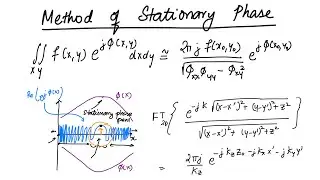 Method of Stationary Phase
∬ f(x,y) e^{jϕ(x,y)} dxdy ≅ 2πj f(x₀,y₀) / √(ϕxx ϕyy − ϕxy²) e^{jϕ(x₀,y₀)}
xy
ϕ(x)
Stationary phase
point
ϕ(x)
FT₂D { e^{-jk√((x-x')²+(y-y')²+z²)} / √((x-x')²+(y-y')²+z²) }
= 2πj / kz e^{-jkz z₀ -jkx x' -jky y'}